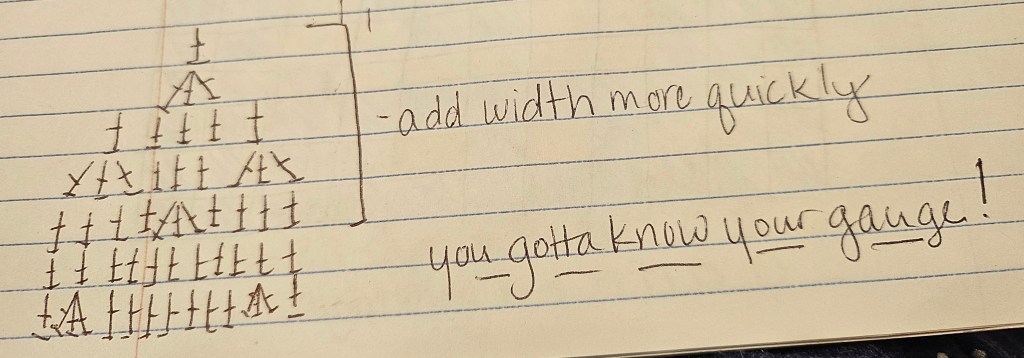 -add width more quickly
you gotta know your gauge!